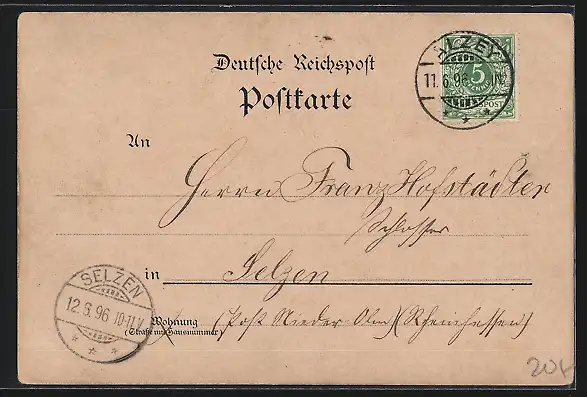 Deutsche Reichspost
Postkarte
ALZEY
11.6.96
5
An
Herrn Franz Hofstädter
Schlosser
in Selzen
SELZEN
12.6.96 10-11 V
Wohnung (Post Nieder-Olm) (Rheinhessen)
(Straße und Hausnummer)
20x